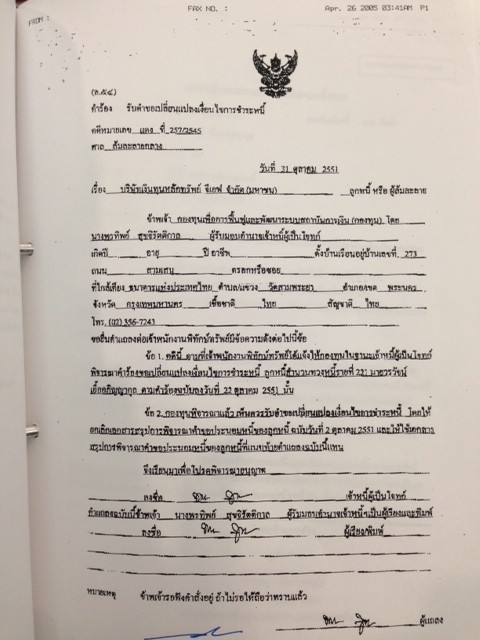 FROM :
FAX NO. :
Apr. 26 2005 03:41AM P1
(ล.๕๔)
คำร้อง รับคำขอเปลี่ยนแปลงเงื่อนไขการชำระหนี้
คดีหมายเลข แดง ที่ 257/2545
ศาล ล้มละลายกลาง
วันที่ 31 ตุลาคม 2551
เรื่อง บริษัทเงินทุนหลักทรัพย์ จีเอฟ จำกัด (มหาชน) ลูกหนี้ หรือ ผู้ล้มละลาย
ข้าพเจ้า กองทุนเพื่อการฟื้นฟูและพัฒนาระบบสถาบันการเงิน (กองทุน) โดย
นางพรทิพย์ สุขจิรัตติกาล ผู้รับมอบอำนาจเจ้าหนี้ผู้เป็นโจทก์
เกิดปี อายุ ปี อาชีพ ตั้งบ้านเรือนอยู่บ้านเลขที่ 273
ถนน สามเสน ตรอกหรือซอย
ที่ใกล้เคียง ธนาคารแห่งประเทศไทย ตำบล/แขวง วัดสามพระยา อำเภอ/เขต พระนคร
จังหวัด กรุงเทพมหานคร เชื้อชาติ ไทย สัญชาติ ไทย
โทร. (02) 356-7243
ขอยื่นคำแถลงต่อเจ้าพนักงานพิทักษ์ทรัพย์มีข้อความดังต่อไปนี้ข้อ
ข้อ 1. คดีนี้ ตามที่เจ้าพนักงานพิทักษ์ทรัพย์ได้แจ้งให้กองทุนในฐานะเจ้าหนี้ผู้เป็นโจทก์
พิจารณาคำร้องขอเปลี่ยนแปลงเงื่อนไขการชำระหนี้ ลูกหนี้สำนวนทวงหนี้รายที่ 221 นายวรวัจน์
เอื้ออภิญญากุล ตามคำร้องฉบับลงวันที่ 22 ตุลาคม 2551 นั้น
ข้อ 2. กองทุนพิจารณาแล้ว เห็นควรรับคำขอเปลี่ยนแปลงเงื่อนไขการชำระหนี้ โดยให้
ยกเลิกเอกสารสรุปการพิจารณาคำขอประนอมหนี้ของลูกหนี้ ฉบับวันที่ 2 ตุลาคม 2551 และให้ใช้เอกสาร
สรุปการพิจารณาคำขอประนอมหนี้ของลูกหนี้ที่แนบท้ายคำแถลงฉบับนี้แทน
จึงเรียนมาเพื่อโปรดพิจารณาอนุญาต
ลงชื่อ เจ้าหนี้ผู้เป็นโจทก์
คำแถลงฉบับนี้ข้าพเจ้า นางพรทิพย์ สุขจิรัตติกาล ผู้รับมอบอำนาจเจ้าหนี้ฯ เป็นผู้เรียงและพิมพ์
ลงชื่อ ผู้เรียง/พิมพ์
หมายเหตุ ข้าพเจ้ารอฟังคำสั่งอยู่ ถ้าไม่รอให้ถือว่าทราบแล้ว
ผู้แถลง